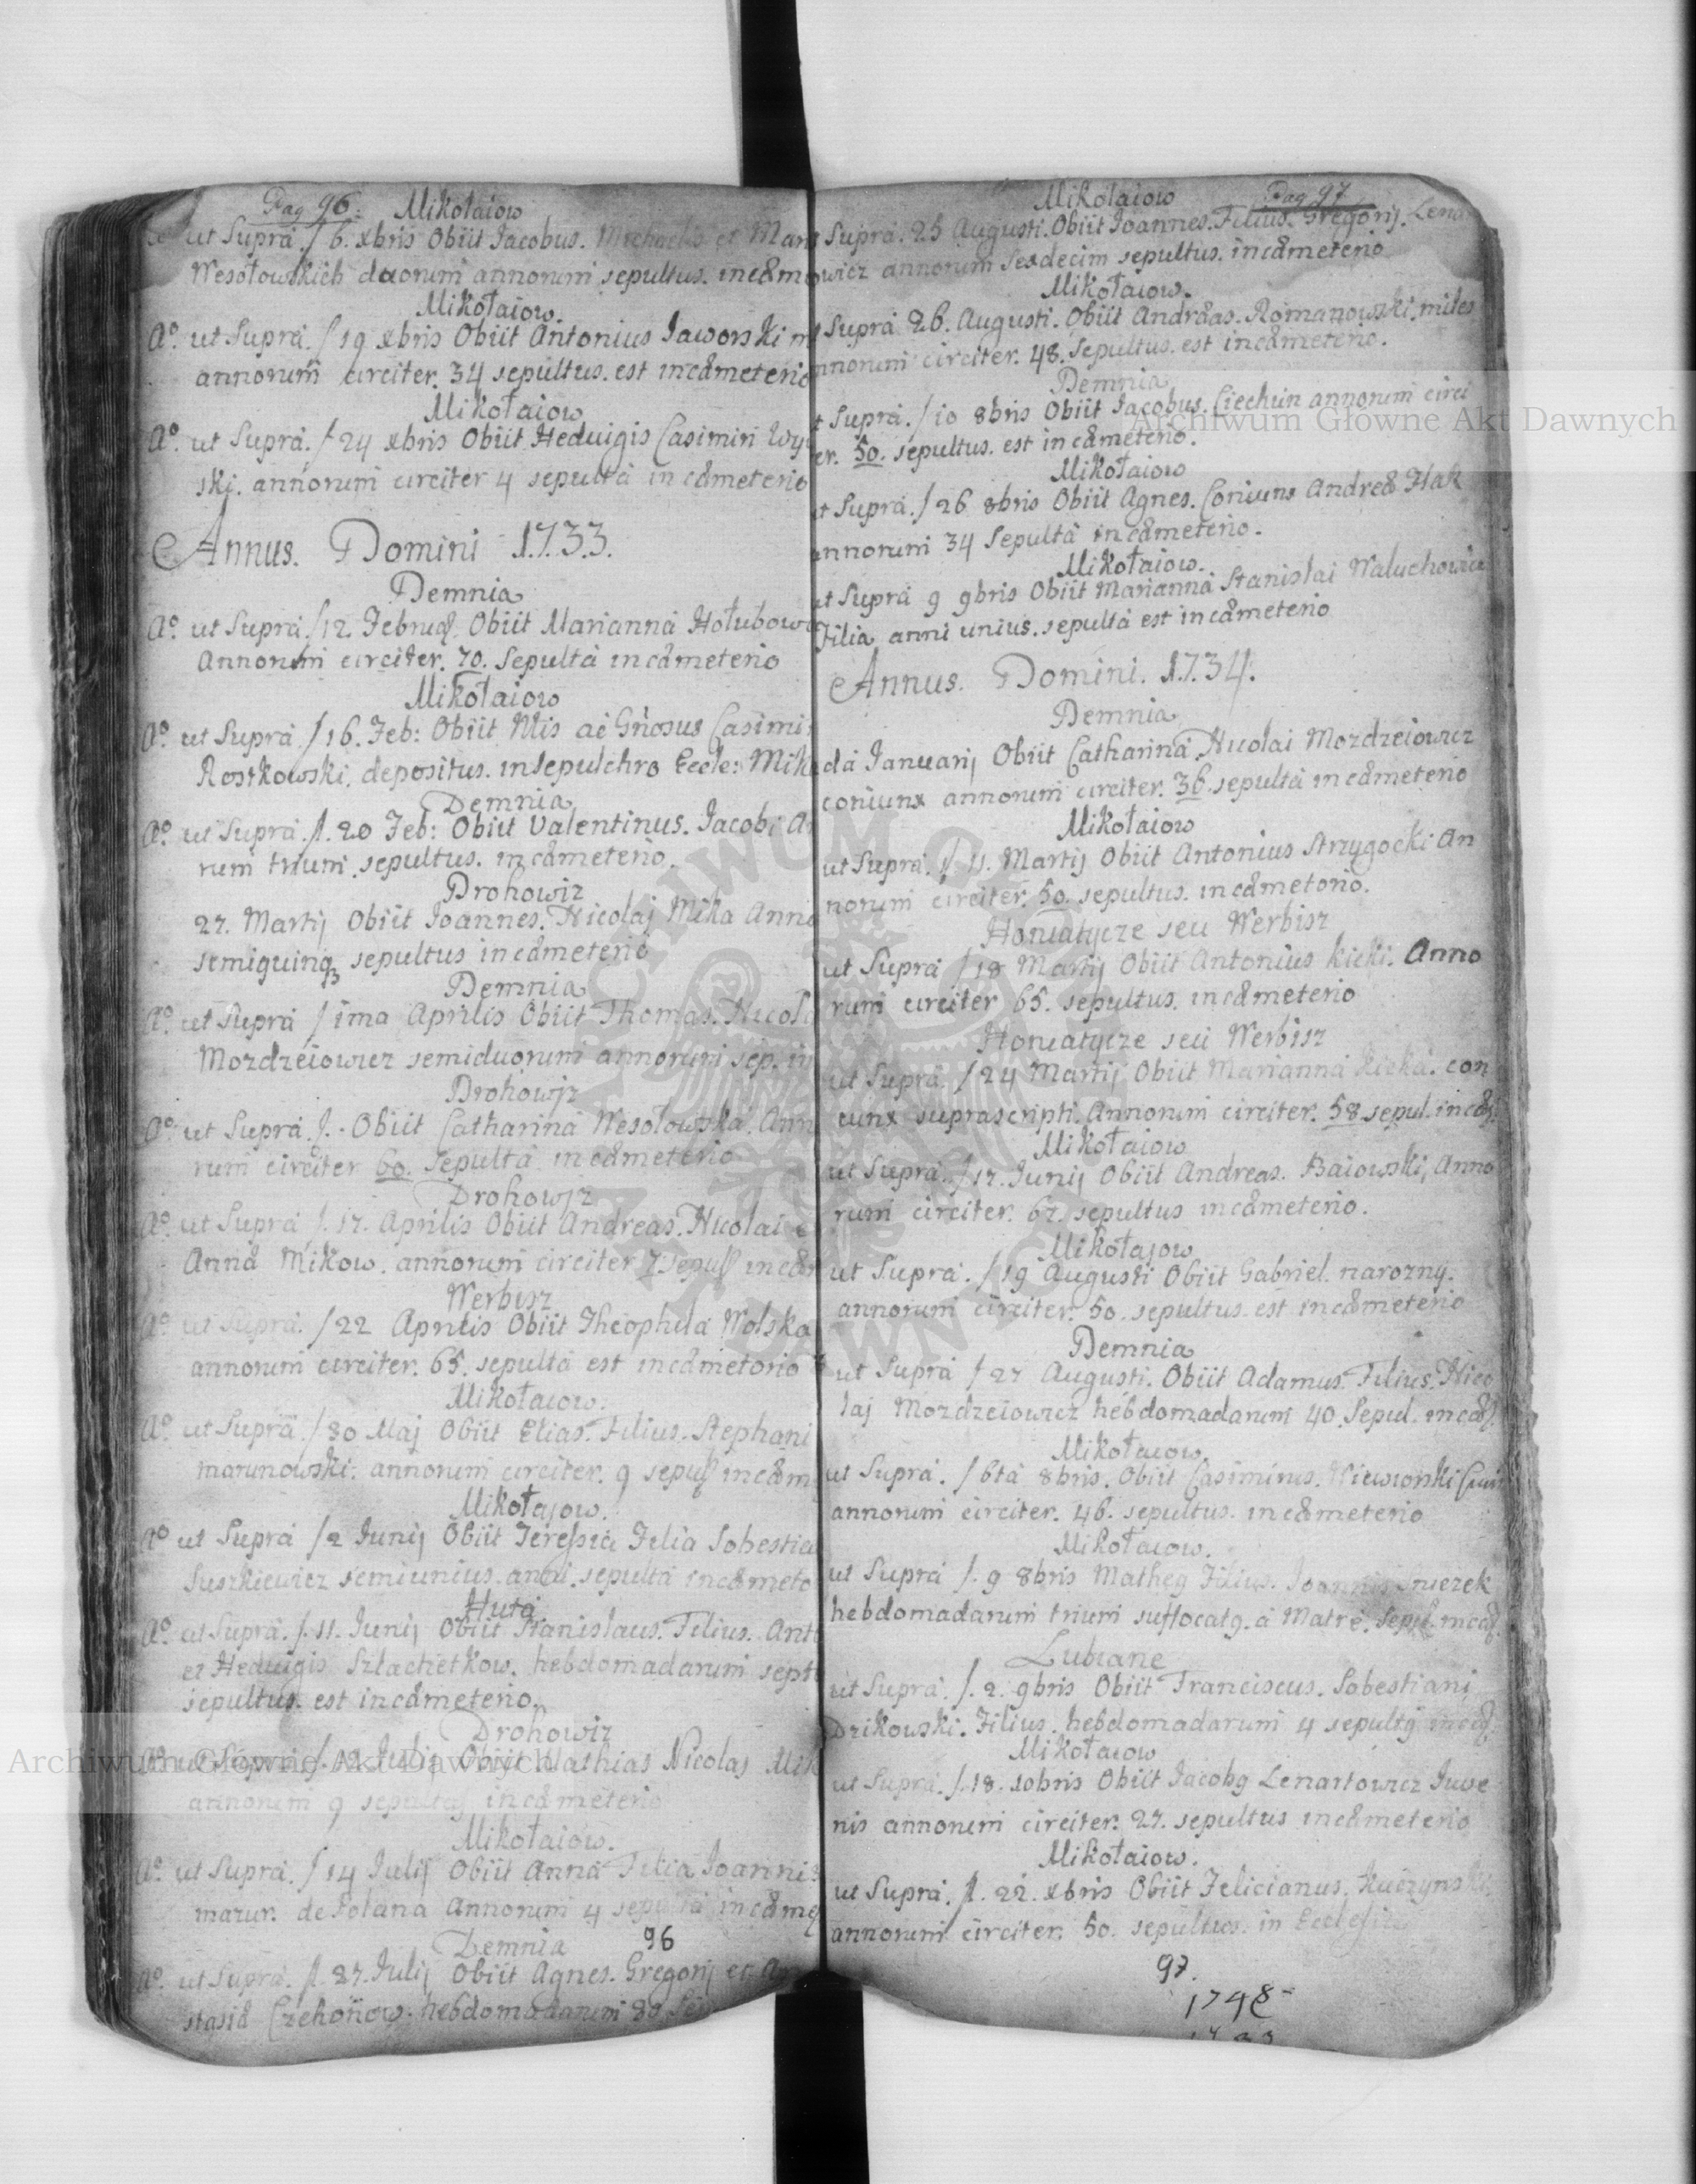 Pag 96. Mikołaiow
ut Supra. / 6. xbris Obiit Jacobus. Michaelis et Mari
Wesołowskich duorum annorum sepultus. in cæme
Mikołaiow.
Aº. ut Supra. / 19 xbris Obiit Antonius Jaworski m
annorum circiter. 34 sepultus. est in cæmeterio
Mikołaiow
Aº. ut Supra. / 24 xbris Obiit Heduigis Casimiri Wy
ski. annorum circiter 4 sepulta in cæmeterio
Annus. Domini 1.7.3.3.
Demnia
Aº. ut Supra. / 12. Februæ. Obiit Marianna Hołubow
Annorum circiter. 70. Sepulta in cæmeterio
Mikołaiow
Aº. ut Supra. / 16. Feb: Obiit Mis ac Gnosus Casimi
Rostkowski. depositus. in Sepulchro Eccle: Mik
Demnia
Aº. ut Supra. /. 20 Feb: Obiit Valentinus. Jacobi An
rum trium. sepultus. in cæmeterio.
Drohowiz
27. Martij Obiit Joannes. Nicolaj Mika Anno
semiquinqȝ sepultus in cæmeterio
Demnia
Aº. ut Supra / ima Aprilis Obiit Thomas. Nicola
Mozdzeiowicz semiduorum annorum sep. in
Drohowjz
Aº. ut Supra. /. Obiit Catharina Wesołowska. Ann
rum circiter 60. Sepulta in cæmeterio
Drohowjz
Aº. ut Supra /. 17. Aprilis Obiit Andreas. Nicolai e
Annæ Mikow. annorum circiter 7. sepul in cæ
Werbisz
Aº. ut Supra. / 22 Aprilis Obiit Theophila Wolska
annorum circiter. 65. sepulta est in cæmetorio
Mikołaiow.
Aº. ut Supra. / 30 Maj Obiit Elias. Filius. Stephani
marunowski. annorum circiter. 9 sepul in cæm
Mikołajow.
Aº ut Supra / 2 Junij Obiit Teressia Filia Sobestia
Suszkiewicz semiunius. anni. sepulta in cæmete
Huta
Aº. ut Supra. /. 11. Junij Obiit Stanislaus. Filius. Anto
et Heduigis Szlachetkow. hebdomadarum septe
sepultus. est in cæmeterio.
Drohowiz
Aº. ut Supra /. 12 Julij Obiit Mathias Nicolaj Mik
annorum 9 sepultus in cæmeterio
Mikołaiow.
Aº. ut Supra. / 14 Julij Obiit Anna Filia Joannis
mazur. de Polana Annorum 4 sepulta in cæme
Demnia 96
Aº. ut Supra. /. 27. Julij Obiit Agnes. Gregorij et An
stasiæ Czehonow. hebdomadarum 30 Se
Mikołaiow Pag 97
Supra. 25 Augusti. Obiit Joannes. Filius. Gregorij. Lenar
owicz annorum Sexdecim sepultus. in cæmeterio
Mikołaiow.
t Supra 26. Augusti. Obiit Andræas. Romanowski. miles
nnorum circiter. 48. Sepultus. est in cæmeterio.
Demnia
t Supra. / 10 8bris Obiit Jacobus. Ciechun annorum circi
er. 50. sepultus. est in cæmeterio.
Mikołaiow
ut Supra. / 26 8bris Obiit Agnes. Coniunx Andreæ Hak
annorum 34 Sepulta in cæmeterio.
Mikołaiow.
ut Supra 9 9bris Obiit Marianna Stanislai Waluchowicz
Filia anni unius. sepulta est in cæmeterio
Annus. Domini. 1.7.3.4.
Demnia
da Januarij Obiit Catharina. Nicolai Mozdzeiowicz
coniunx annorum circiter. 36. sepulta in cæmeterio
Mikołaiow
ut Supra. /. 11. Martij Obiit Antonius Strzygocki An
norum circiter. 50. sepultus. in cæmetorio.
Honiatycze seu Werbisz
ut Supra / 18 Martij Obiit Antonius kicki. Anno
rum circiter 65. sepultus. in cæmeterio
Honiatycze seu Werbisz
ut Supra. / 24 Martij Obiit Marianna kicka. con
iunx suprascripti. Annorum circiter. 58 sepul. in cæ.
Mikołaiow
ut Supra. / 17. Junij Obiit Andreas. Baiowski, Anno
rum circiter. 67. sepultus in cæmeterio.
Mikołajow
ut Supra. / 19 Augusti Obiit Gabriel. narozny.
annorum circiter. 50. sepultus. est in cæmeterio
Demnia
ut Supra / 27 Augusti. Obiit Adamus. Filius. Nico
laj Mozdzeiowicz hebdomadarum 40. Sepul. in cæ.
Mikołaiow.
ut Supra. / 6ta 8bris. Obiit Casimirus. Niewionski
annorum circiter. 46. sepultus. in cæmeterio
Mikołaiow.
ut Supra /. 9 8bris Matheq Filius. Joannis
hebdomadarum trium suffocatq. a Matre. Sepul. in cæ.
Lubiane
ut Supra. /. 2. 9bris Obiit Franciscus. Sobestiani
Dzikowski. Filius. hebdomadarum 4 sepultq in cæ.
Mikołaiow
ut Supra. /. 18. 10bris Obiit Jacobq Lenartowicz Juve
nis annorum circiter. 27. sepultus in cæmeterio
Mikołaiow.
ut Supra. /. 22. xbris Obiit Felicianus. Kuczynski
annorum circiter. 50. sepultus. in Ecclesia
97.
1748
Archiwum Główne Akt Dawnych
Archiwum Główne Akt Dawnych
ARCHIWUM GŁÓWNE AKT DAWNYCH